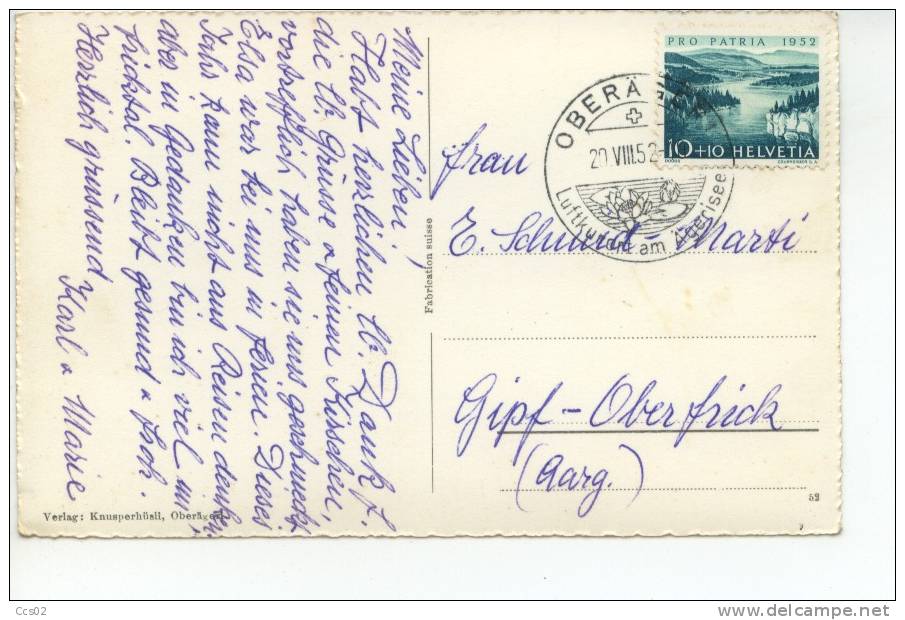 Meine Lieben!
Habt herzlichen lb. Dank f.
die lb. Grüsse & feinen Küsschen,
vortrefflich haben sie uns geschmeckt
Elsa war bei uns in Ferien. Dieses
Jahr kann nicht ans Reisen denken
aber in Gedanken bin ich viel im
Fricktal. Bleibt gesund & froh.
Herzlich grüssend
Karl & Marie
Verlag: Knusperhüsli, Oberägeri
Fabrication suisse
PRO PATRIA 1952
10+10 HELVETIA
OBERÄ
20.VIII.52
Luftkurort am Ägerisee
Frau
E. Schmid-Marti
Gipf-Oberfrick
(Aarg.)
52
Ccs02
delcampe.net